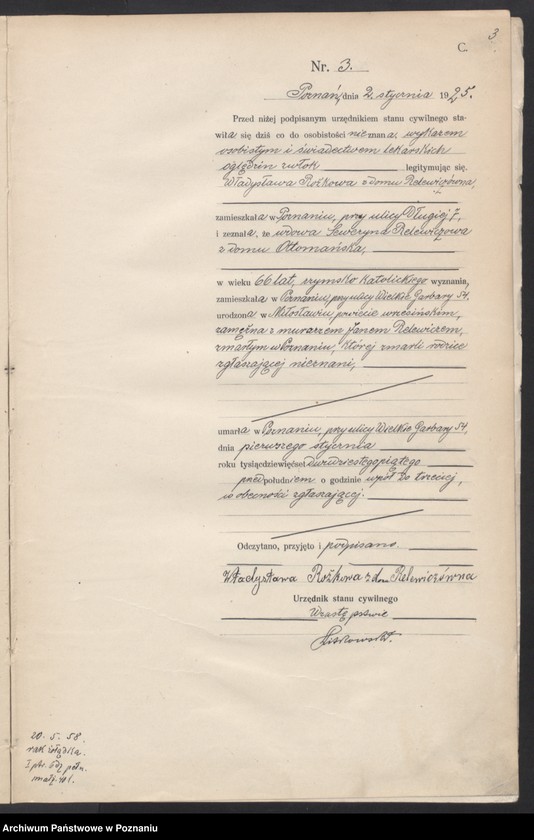 3
C.
Nr. 3.
Poznań, dnia 2. stycznia 1925.
Przed niżej podpisanym urzędnikiem stanu cywilnego sta-
wiła się dziś co do osobistości nieznana, wykazem
osobistym i świadectwem lekarskich
oględzin zwłok legitymując się.
Władysława Rożkowa z domu Relewiczówna,
zamieszkała w Poznaniu, przy ulicy Długiej
i zeznała, że wdowa Seweryna Relewiczowa
z domu Ottomańska,
w wieku 66 lat, rzymsko katolickiego wyznania,
zamieszkała w Poznaniu, przy ulicy Wielkie Garbary 54,
urodzona w Miłosławiu powiecie wrzesińskim,
zamężna z murarzem Janem Relewiczem,
zmarłym w Poznaniu, której zmarli rodzice
zgłaszającej nieznani,
umarła w Poznaniu, przy ulicy Wielkie Garbary 54,
dnia pierwszego stycznia
roku tysiącdziewięćset dwudziestegopiątego
przed południem o godzinie wpół do trzeciej,
w obecności zgłaszającej.
Odczytano, przyjęto i podpisano.
Władysława Rożkowa z dom Relewiczówna
Urzędnik stanu cywilnego
W zastępstwie
20. 5. 58.
rak żołądka.
Archiwum Państwowe w Poznaniu